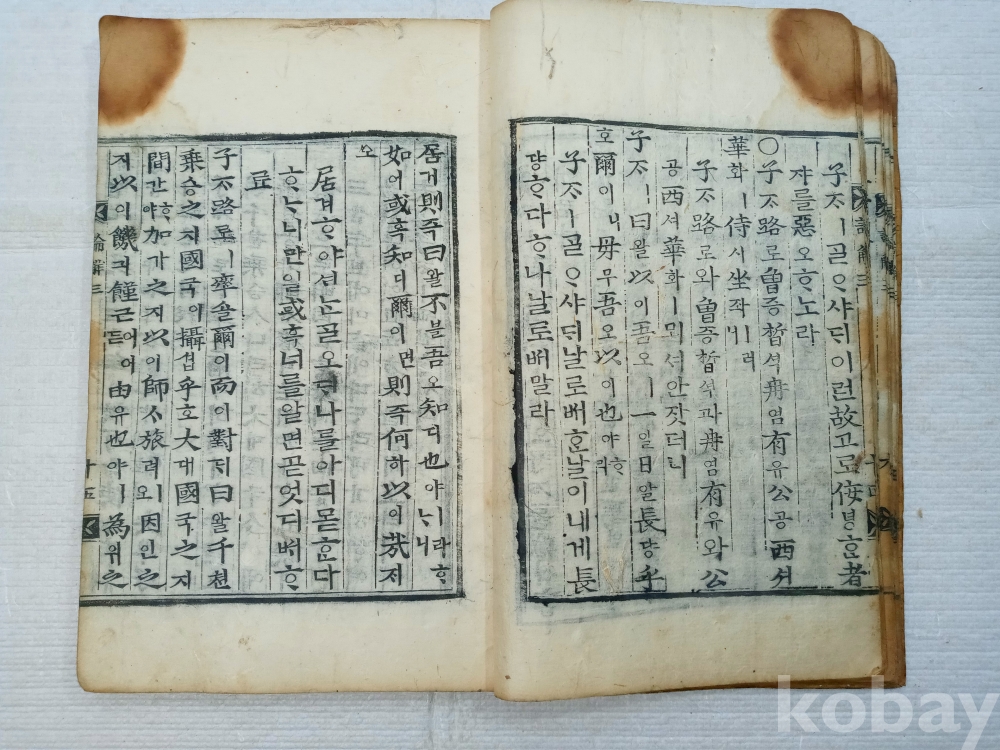 子ᄌᆞㅣᄀᆞᆯᄋᆞ샤ᄃᆡ이런故고로佞녕ᄒᆞᆫ者
쟈를惡오ᄒᆞ노라
○子ᄌᆞ路로曾증晳셕冉염有유公공西셔
華화ㅣ侍시坐좌ㅣ러
子ᄌᆞ路로와曾증晳셕과冉염有유와公
공西셔華화ㅣ뫼셔안잣더니
子ᄌᆞㅣ曰왈以이吾오ㅣ一일日일長댱乎
호爾이나毋무吾오以이也야ᄒᆞ라
子ᄌᆞㅣᄀᆞᆯᄋᆞ샤ᄃᆡ날로ᄡᅥᄒᆞᆫ날이네게長
댱ᄒᆞ다ᄒᆞ나날로ᄡᅥ말라
居거則즉曰왈不블吾오知디也야ㅣ라ᄒᆞᄂᆞ니
如여或혹知디爾이면則즉何하以이哉ᄌᆡ
오
居거ᄒᆞ야셔ᄂᆞᆫᄀᆞᆯ오ᄃᆡ나를아디몯ᄒᆞᆫ다
ᄒᆞᄂᆞ니만일或혹너를알면곧엇디ᄡᅥᄒᆞ
료
子ᄌᆞ路로ㅣ率솔爾이而이對ᄃᆡ曰왈千쳔
乘승之지國국이攝셥乎호大대國국之지
間간ᄒᆞ야加가之지以이師ᄉᆞ旅려오因인之
지以이饑긔饉근이어든由유也야ㅣ爲위之
十五
kobay